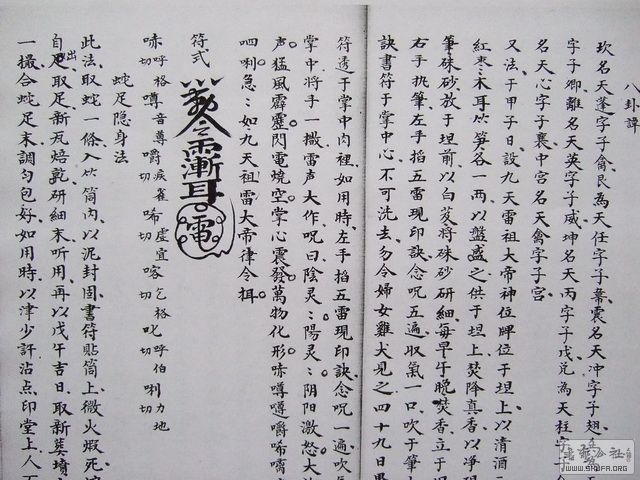 八卦諱
坎名天蓬字子禽艮為天任字子 震名天冲字子翅
字子卿離名天英字子威坤名天丙字子戌兌為天柱字子
名天心字子襄中宮名天禽字子宮
又法于甲子日設九天雷祖大帝神位牌位于坦上以清酒
紅枣木耳以笋各一两以盤盛之供于坦上焚降真香以净
筆硃砂放于坦前以白芨将硃砂研細每早午晚焚香立于
右手执筆左手掐五雷現印訣念呪五遍取氣一口吹于筆
訣書符于掌中心不可洗去勿令婦女雞犬見之四十九日
符透于掌中肉裡如用時左手掐五雷現印訣念呪一遍吹
掌中将手一撒雷声大作呪曰陰灵陽灵阴阳激怒大
声猛風霹靂閃電燒空掌心震發萬物化形
呬唎急如九天祖雷大帝律令揖
符式
呼格切 噂音尊 嚼疾雀切 唏虚宜切 喀乞格切 叱 呼伯切 唎力地切
蛇足隐身法
此法取蛇一條入竹筒内以泥封固書符貼筒上微火煅死
自出足取足新瓦焙乾研細末听用再以戊午吉日取新葬墳
一撮合蛇足末調匀包好如用時以津少許沾点印堂上人
WWW.SHUFA.ORG